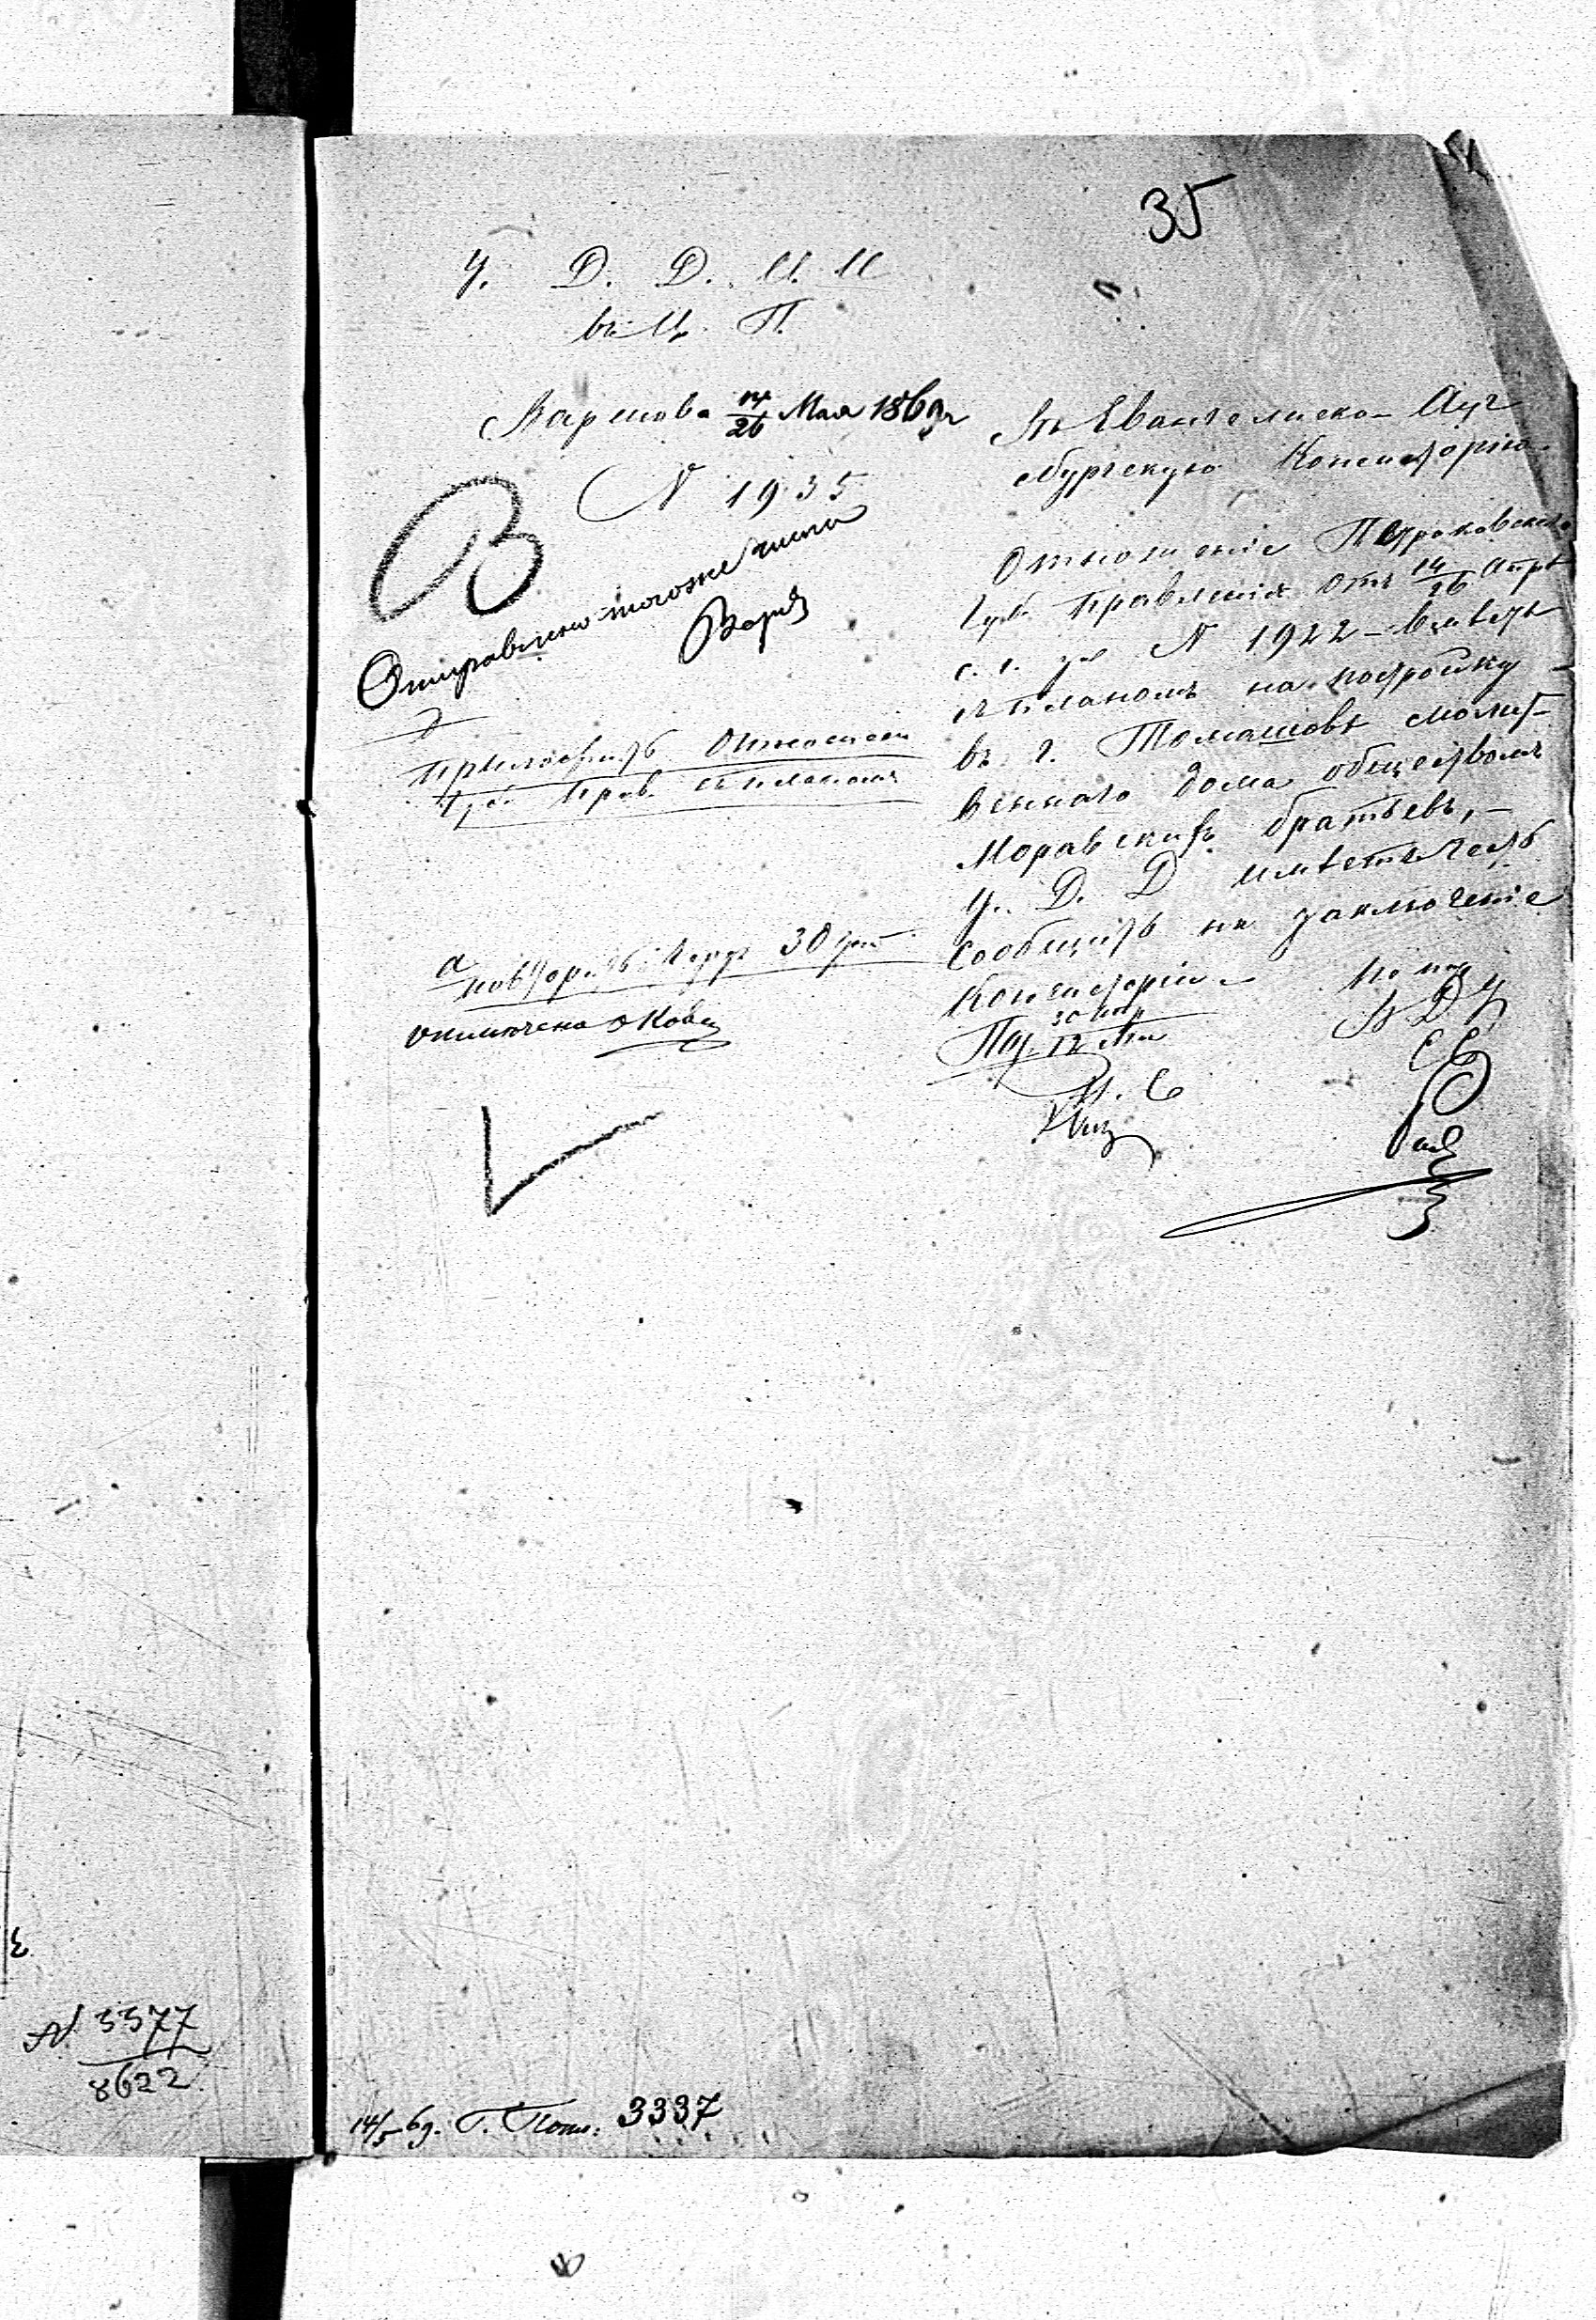 35
У. Д. Д. И. И
въ Ц. П.
Варшава 14/26 Мая 1869 г
N 1935
Отправлено того же числа
приложить отношен
Губ. Прав. съ планомъ
а повторить черезъ 30 дней
Въ Евангелическо-Ауг
сбургскую Консисторію
Отношеніе Петроковскаго
Губ. Правленія отъ 14/26 Апрѣ
с. г. за N 1922 - вмѣстѣ
съ планомъ на постройку
въ г. Томашовѣ молит-
веннаго дома обществомъ
Моравскихъ братьевъ, -
У. Д. Д имѣетъ честь
сообщить на заключеніе
Консисторіи -
Под. 30 Апр / 12 Мая
Н. С
В. Д У
N 3377
8622
14/5 69. Г. Попл: 3337